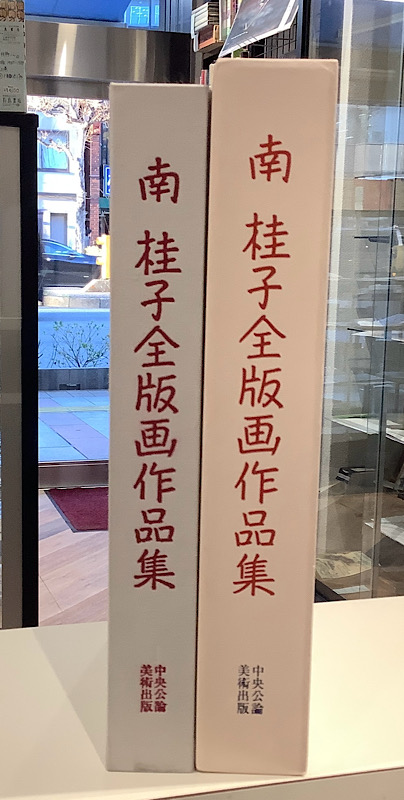 南 桂子全版画作品集
中央公論
美術出版
南 桂子全版画作品集
中央公論
美術出版